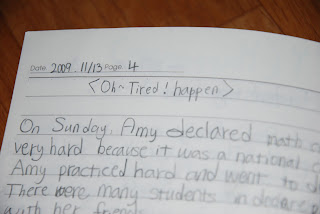 Date. 2009. 11/13 Page. 4
<Oh~ Tired! happen>
On Sunday, Amy declared math
very hard because it was a national
Amy practiced hard and went to
There were many students in declare
with her